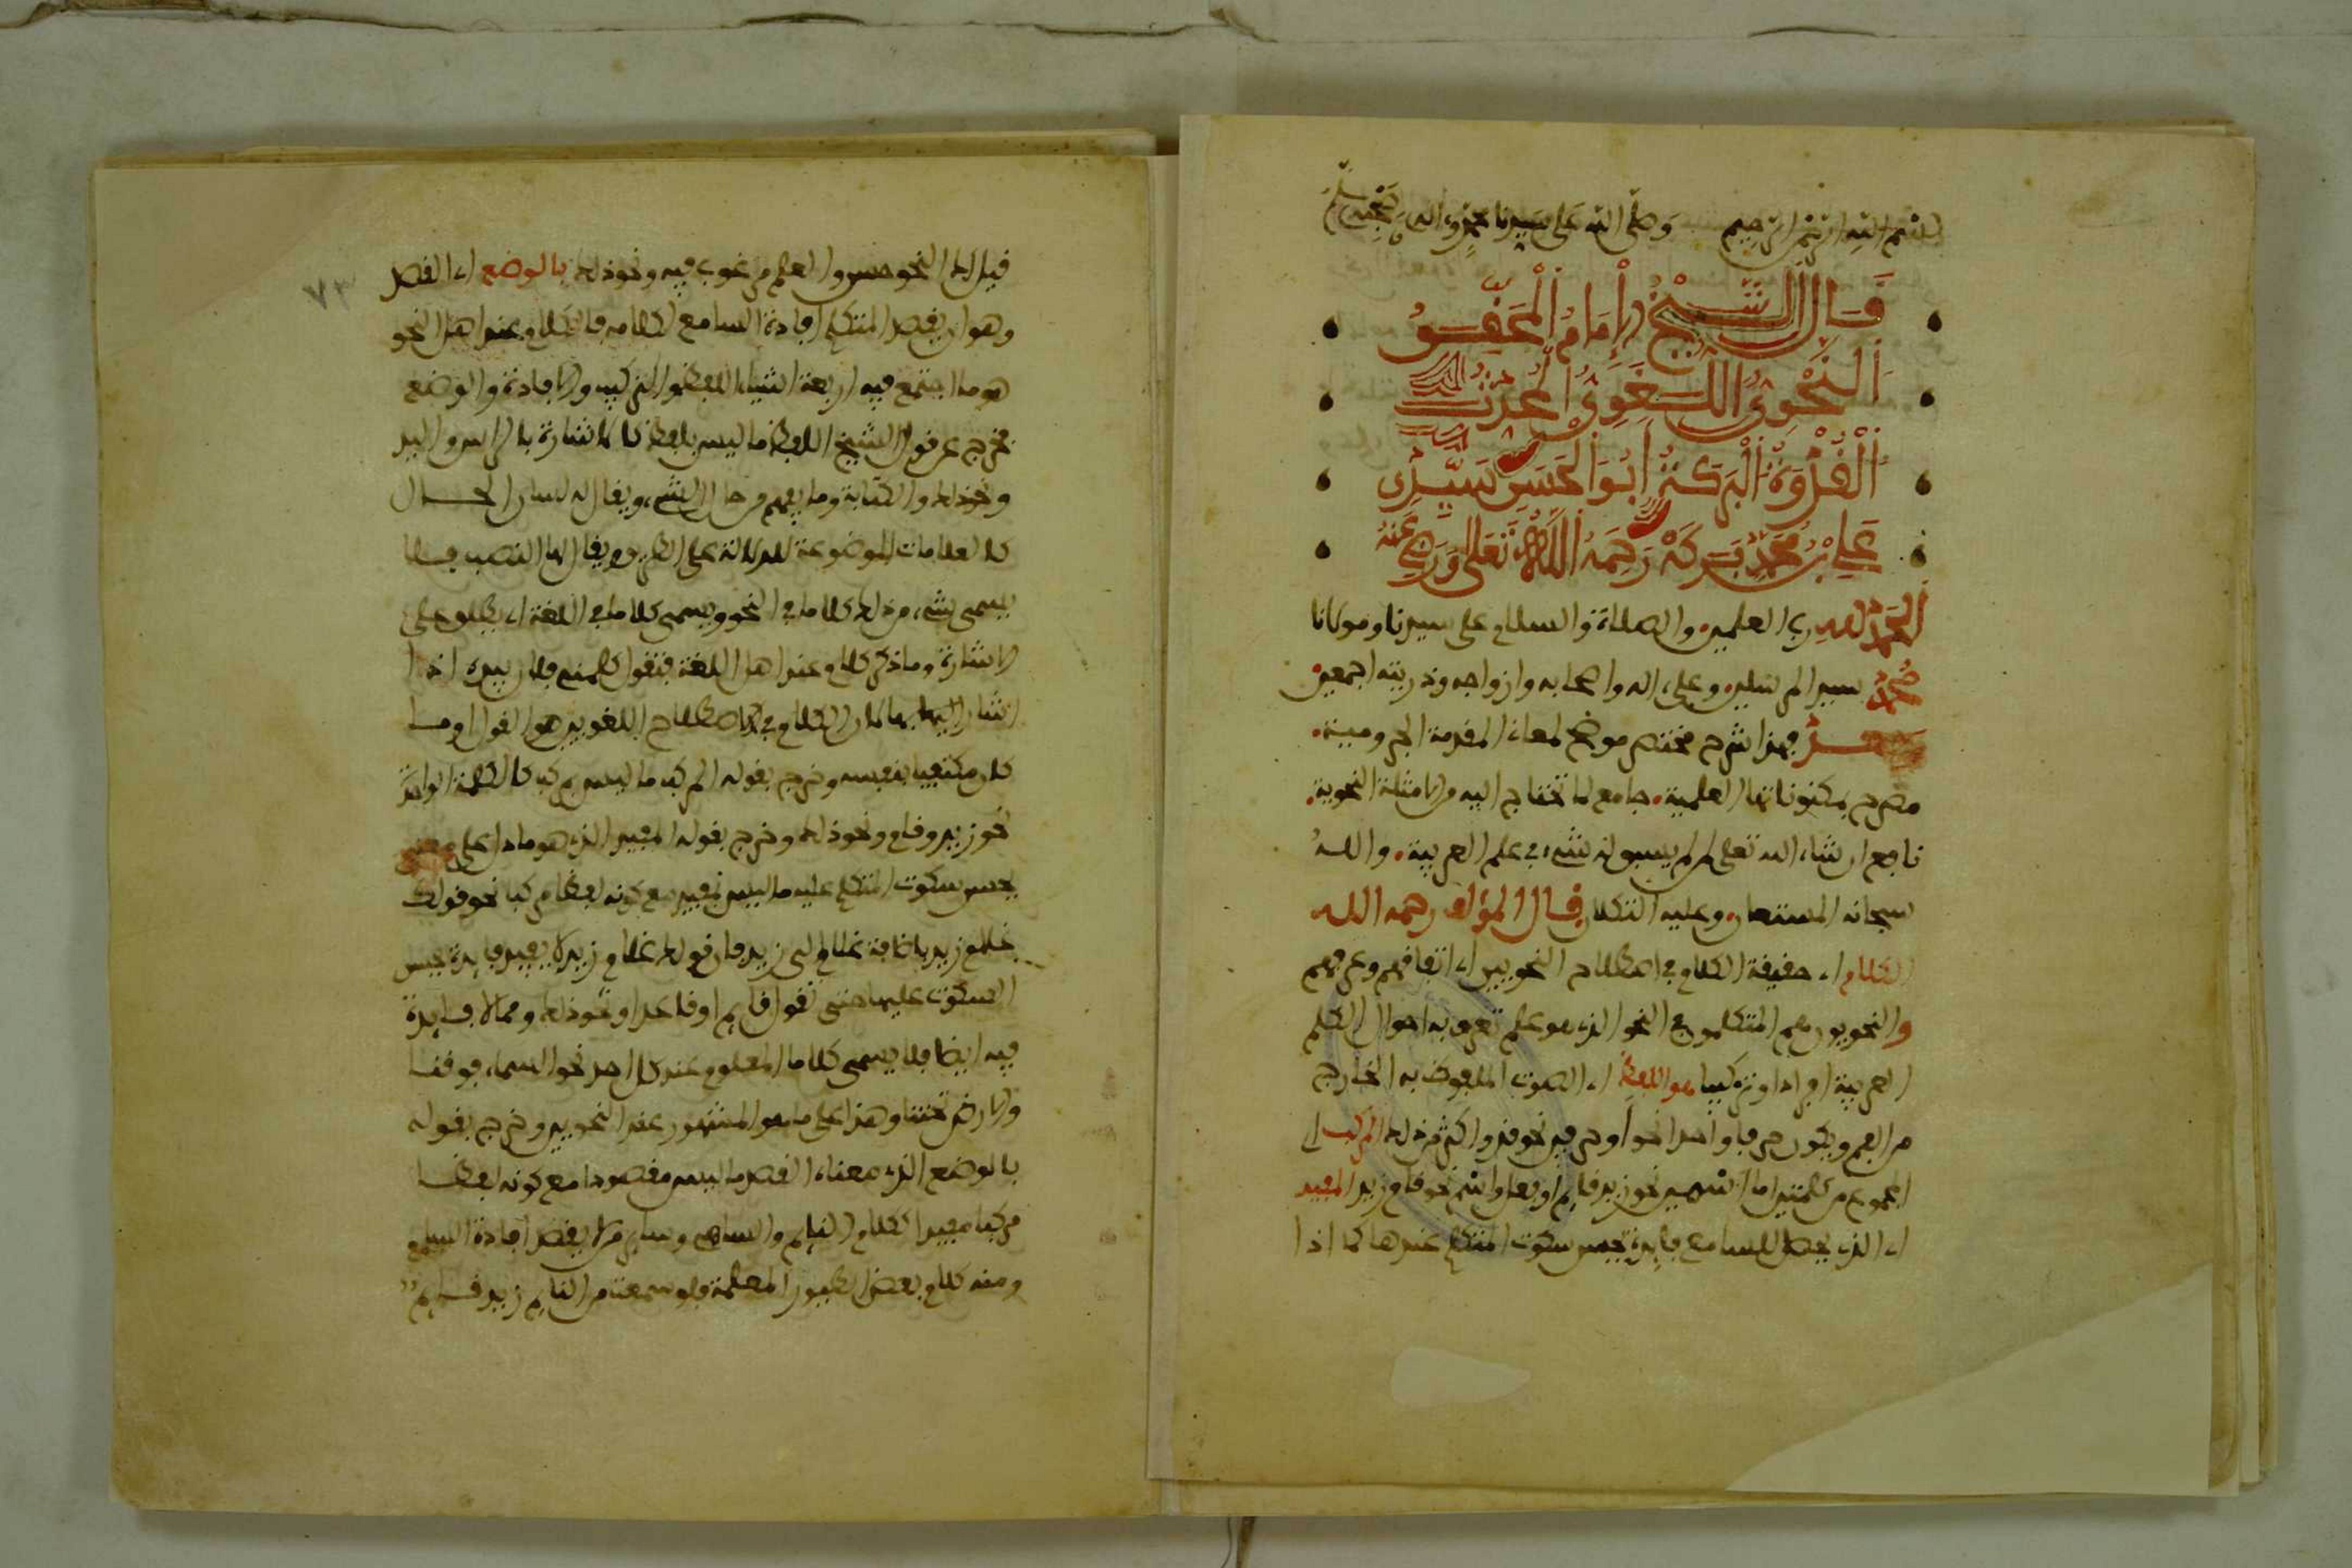 بسم الله الرحمن الرحيم وصلى الله على سيدنا محمد وءاله وصحبه وسلم
قال الشيخ الإمام المحقق
النحوي اللغوي المحدث
القدوة البركة أبو الحسن سيدي
علي بن محمد بركة رحمه الله تعلى ورضي عنه
الحمد لله رب العلمين والصلاة والسلام على سيدنا ومولانا
محمد سيد المرسلين وعلى ءاله واصحابه وازواجه وذريته اجمعين
فهذا شرح مختصر موضح لمعاني المقدمة الجرومية
مصرح بمكنوناتها العلمية جامع لما تحتاج اليه من الامثلة النحوية
نافع ان شاء الله تعلى لمن لم يسبق له شيء في علم العربية والله
سبحانه المستعان وعليه التكلان قال المؤلف رحمه الله
الكلام اي حقيقة الكلام في اصطلاح النحويين اي اتفاقهم وعرفهم
والنحويون هم المتكلمون في النحو الذي هو علم تعرف به احوال الكلم
العربية افرادا وتركيبا هو اللفظ اي الصوت الملفوظ به الخارج
من الفم ويكون حرفا واحدا نحو أ وحرفين نحو قد واكثر من ذلك المركب اي
المجموع من كلمتين اما اسمين نحو زيد قائم او فعل واسم نحو قام زيد المفيد
اي الذي يحصل للسامع فايدة يحسن سكوت المتكلم عندها كما اذا
قيل لك النحو حسن والعلم مرغوب فيه ونحو ذلك بالوضع اي القصد
وهو ان يقصد المتكلم افادة السامع بكلامه فالكلام عند اهل النحو
هو ما اجتمع فيه اربعة اشياء اللفظ والتركيب والافادة والوضع
فخرج عن قول الشيخ اللفظ ما ليس بلفظ كالاشارة بالراس واليد
ونحو ذلك والكتابة وما يفهم من حال الشيء ويقال له لسان الحال
كالعلامات الموضوعة للدلالة على الطريق ويقال لها النصب فلا
يسمى شيء من ذلك كلاما في النحو ويسمى كلاما في اللغة اي يطلق على
الاشارة وما ذكر كلام عند اهل اللغة فتقول كلمني فلان بيده اذا
اشار اليك بها لان الكلام في اصطلاح اللغويين هو القول او ما
كان مكتفيا بنفسه وخرج بقوله المركب ما ليس مركب كالكلمة الواحدة
نحو زيد وقام ونحو ذلك وخرج بقوله المفيد الذي هو ما دل على معنى
يحسن سكوت المتكلم عليه ما ليس بمفيد مع كونه لفظا مركبا نحو قولك
غلام زيد باضافة غلام الى زيد فان قولك غلام زيد لا يفيد فايدة يحسن
السكوت عليها حتى تقول قايم او قاعد او نحو ذلك ومما لا فايدة
فيه ايضا فلا يسمى كلاما المعلوم عند كل احد نحو السماء فوقنا
والارض تحتنا وهذا على ما هو المشهور عند النحويين وخرج بقوله
بالوضع الذي معناه القصد ما ليس مقصودا مع كونه لفظا
مركبا مفيدا ككلام النايم والساهي وساير من لا يقصد افادة السامع
ومنه كلام بعض الطيور المعلمة فلو سمعت من النايم زيد قايم